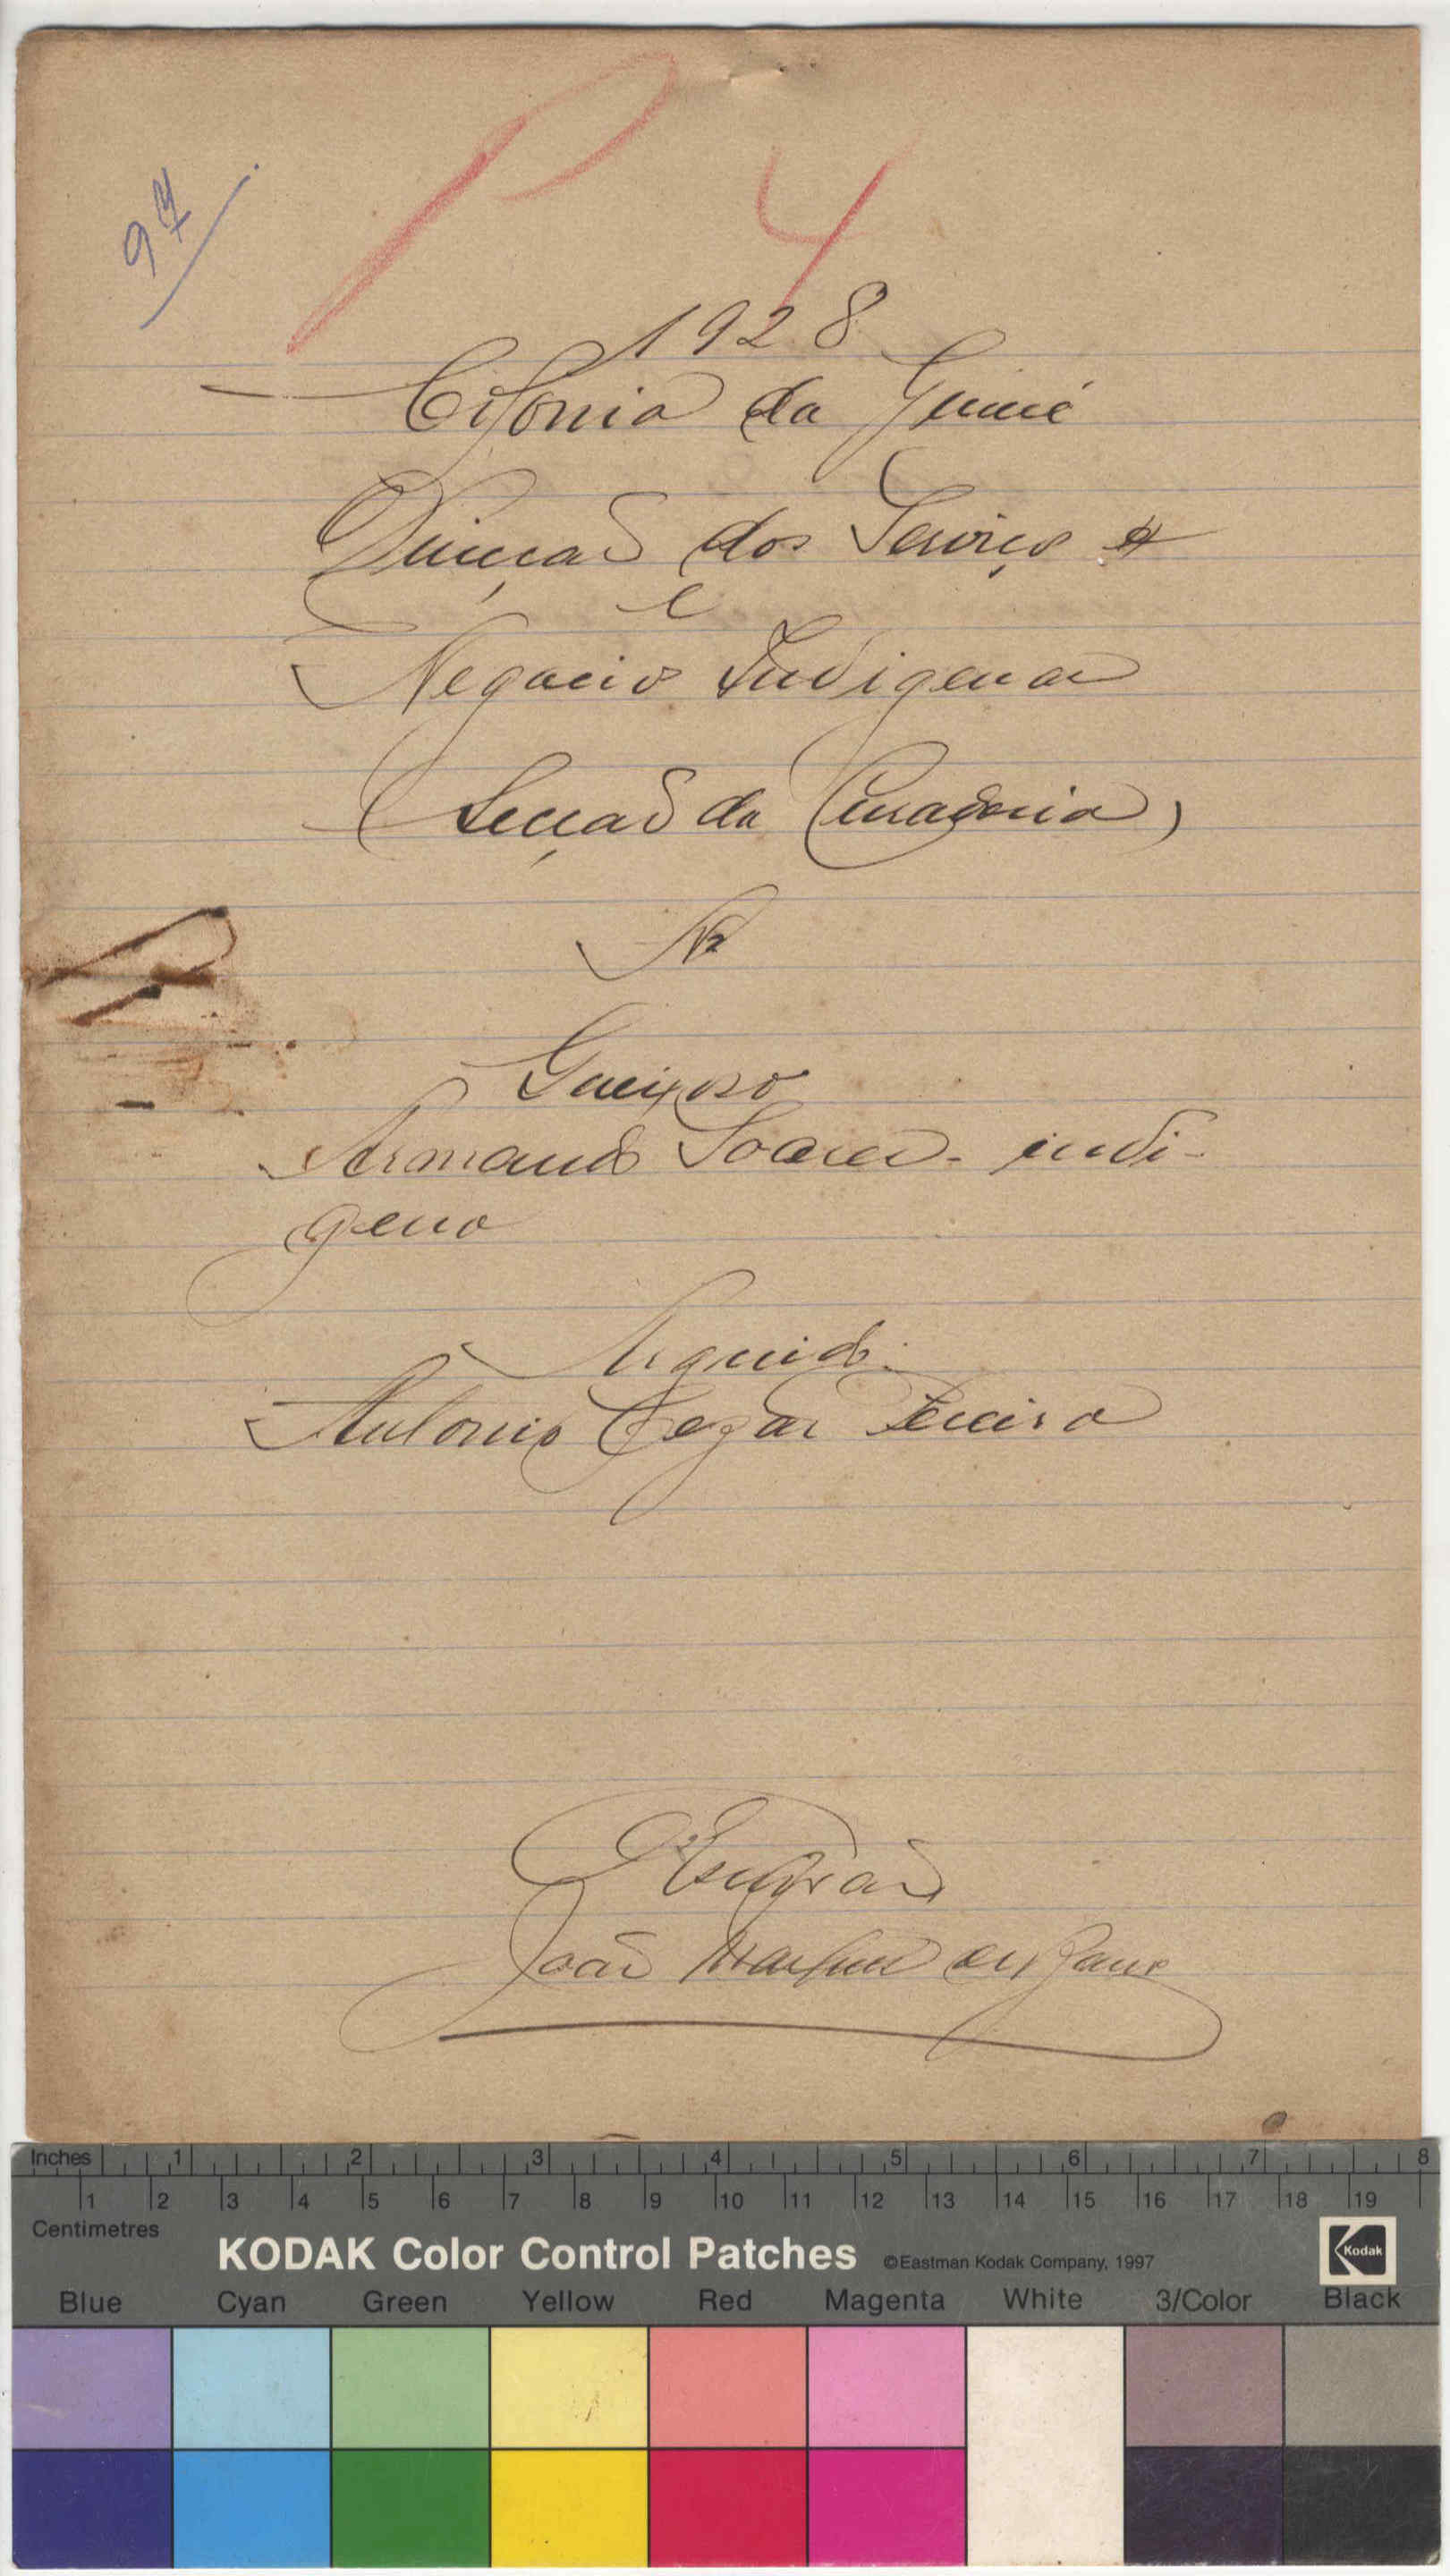 P 4
97
1928
Colonia da Guiné
Direcçaõ dos Serviços
e
Negocios Indigenas
(Secçaõ da Curadoria)
Nº
Queixoso
Armando Soares - indi-
geno
Arguido
Antonio Cezar Pereira
O Escrivaõ
Joaõ
Inches 1 2 3 4 5 6 7 8
1 2 3 4 5 6 7 8 9 10 11 12 13 14 15 16 17 18 19
Centimetres
KODAK Color Control Patches ©Eastman Kodak Company, 1997 Kodak
Blue Cyan Green Yellow Red Magenta White 3/Color Black